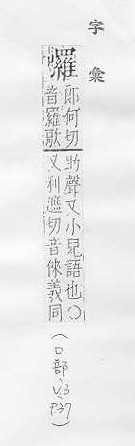 字彙
囉
郎何切
音羅歌
助聲又小兒語也〇
又利遮切音倈義同
(口部, V.3 P.37)